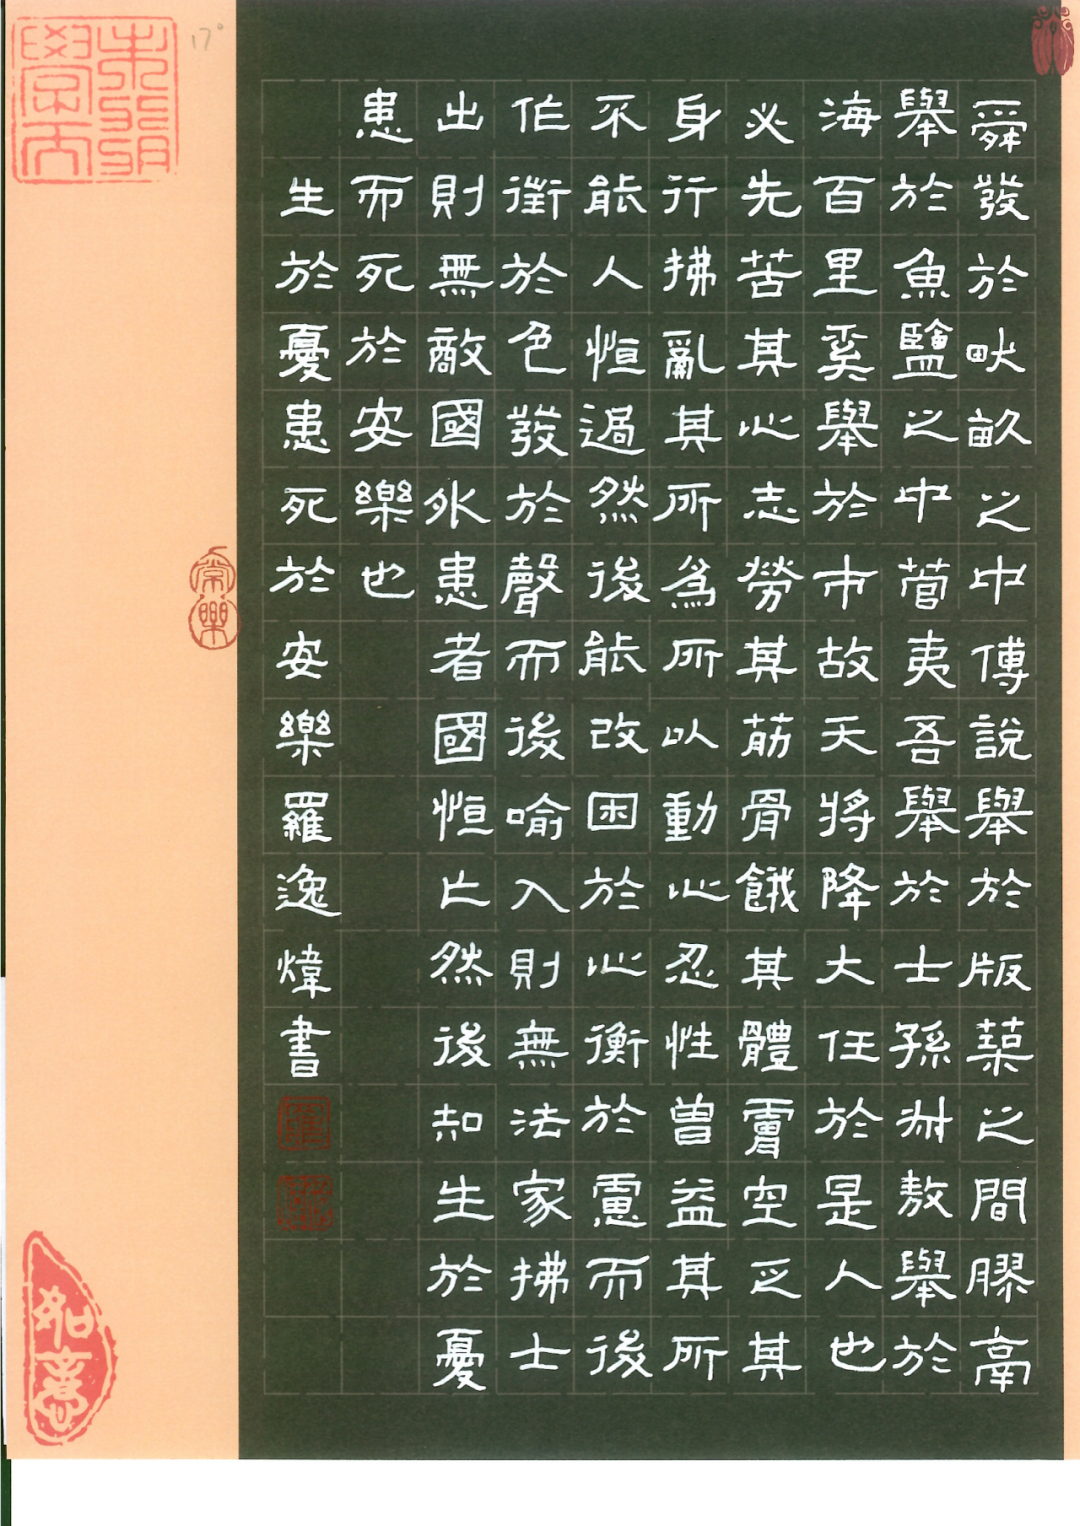 舜發於畎畝之中傅說舉於版築之間膠鬲
舉於魚鹽之中管夷吾舉於士孫叔敖舉於
海百里奚舉於市故天將降大任於是人也
必先苦其心志勞其筋骨餓其體膚空乏其
身行拂亂其所爲所以動心忍性曾益其所
不能人恒過然後能改困於心衡於慮而後
作徵於色發於聲而後喻入則無法家拂士
出則無敵國外患者國恒亡然後知生於憂
患而死於安樂也
生於憂患死於安樂羅逸煒書
常樂
如意
17°